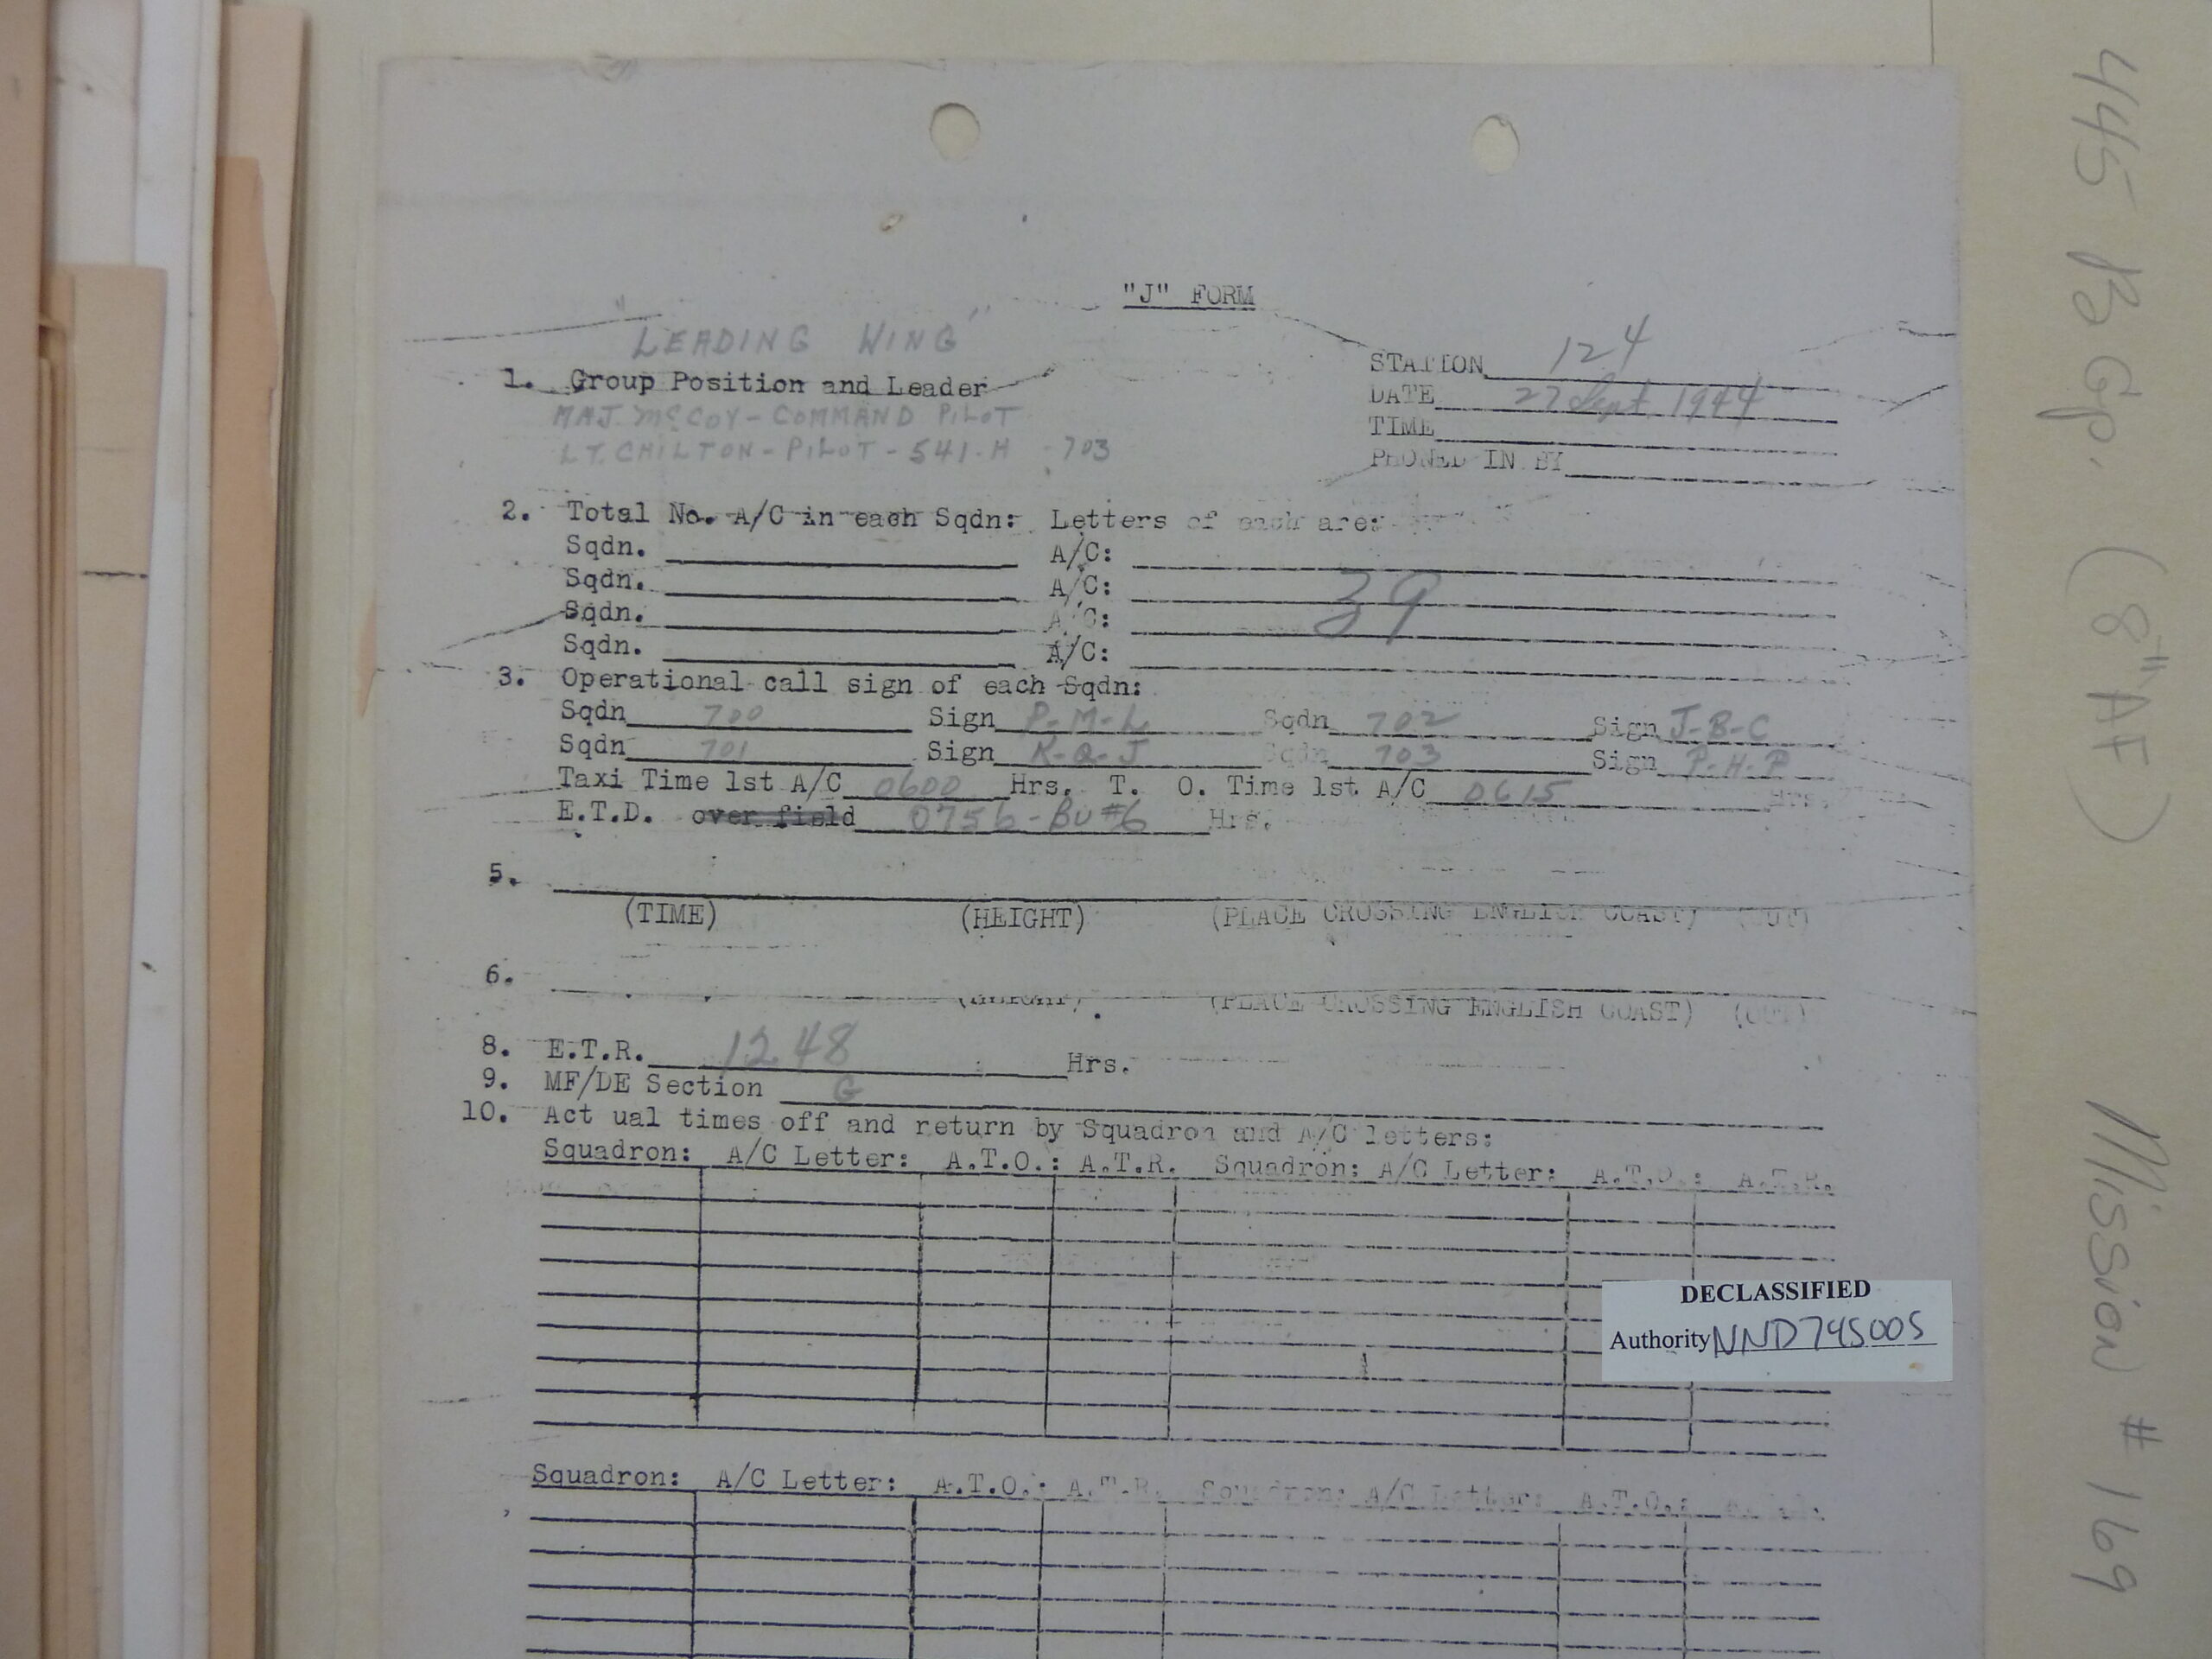 "J" FORM
"LEADING WING"
STATION 124
1. Group Position and Leader
DATE 27 Sept. 1944
MAJ. McCOY - COMMAND PILOT
TIME
LT. CHILTON - PILOT - 541-H - 703
PHONED IN BY
2. Total No. A/C in each Sqdn: Letters of each are:
Sqdn. A/C:
Sqdn. A/C: 39
Sqdn. A/C:
Sqdn. A/C:
3. Operational call sign of each Sqdn:
Sqdn 700 Sign P-M-L Sqdn 702 Sign J-B-C
Sqdn 701 Sign K-Q-J Sqdn 703 Sign P-H-P
Taxi Time 1st A/C 0600 Hrs. T. O. Time 1st A/C 0615 Hrs.
E.T.D. over field 0756 - Bu #6 Hrs.
5.
(TIME) (HEIGHT) (PLACE CROSSING ENGLISH COAST) (OUT)
6.
(HEIGHT) (PLACE CROSSING ENGLISH COAST) (OUT)
8. E.T.R. 1248 Hrs.
9. MF/DE Section G
10. Act ual times off and return by Squadron and A/C letters:
Squadron: A/C Letter: A.T.O.: A.T.R. Squadron: A/C Letter: A.T.O.: A.T.R.
DECLASSIFIED
Authority NND745005
Squadron: A/C Letter: A.T.O.: A.T.R. Squadron: A/C Letter: A.T.O.:
445 B Gp. (8" AF) Mission # 169